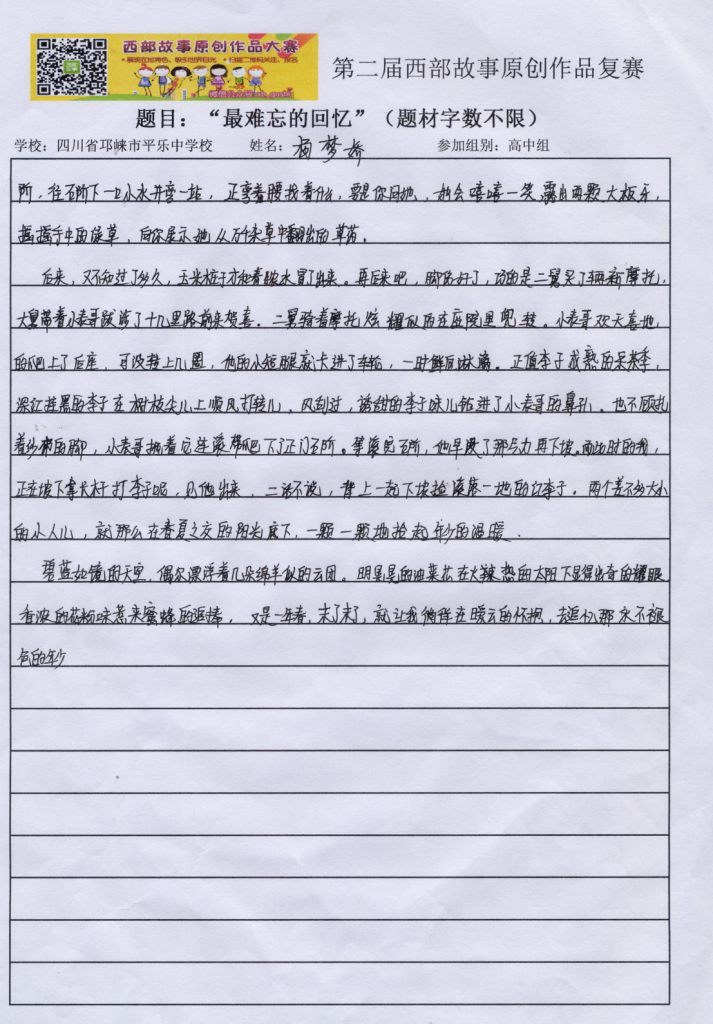 西部故事原创作品大赛
第二届西部故事原创作品复赛
题目：“最难忘的回忆”（题材字数不限）
学校：四川省邛崃市平乐中学校 姓名：梦娇 参加组别：高中组
所，往厕所下一口小水井旁一站，正弯着腰找着什么，要是你问她，她会嘻嘻一笑，露出两颗大板牙，
摇摇手中的绿草，向你展示她从万千杂草中翻出的草药。
后来，又不知过了多久，玉米桩子才和着脓水冒了出来。再后来吧，脚伤好了，巧的是二舅买了辆新摩托，
大舅带着小表哥跋涉了十几里路前来贺喜。二舅骑着摩托炫耀似的在庭院里兜转。小表哥欢天喜地
的爬上了后座，可没转上几圈，他的小短腿就卡进了车轮，一时鲜血淋漓。正值李子成熟的采季，
深红泛黑的李子在树枝尖儿上顺风打转儿，风到过，诱甜的李子味儿钻进了小表哥的鼻孔。也不顾扎
着纱布的脚，小表哥拖着它连滚带爬下了正门厕所。等滚完厕所，他早没了那力再下坡。而此时的我，
正在坡下拿长杆打李子呢，见他出来，二话不说，背上一起下坡捡滚落一地的红李子。两个差不多大小
的小人儿，就那么在春夏之交的阳光底下，一颗一颗地捡起年少的温暖。
碧蓝如镜的天空，偶尔漂浮着几朵绵羊似的云团。明晃晃的油菜花在火辣热的太阳下显得出奇的耀眼
香浓的花粉味惹来蜜蜂的追捧，又是一年春，末了末了，就让我徜徉在暖云的怀抱，去追忆那永不褪
色的年少